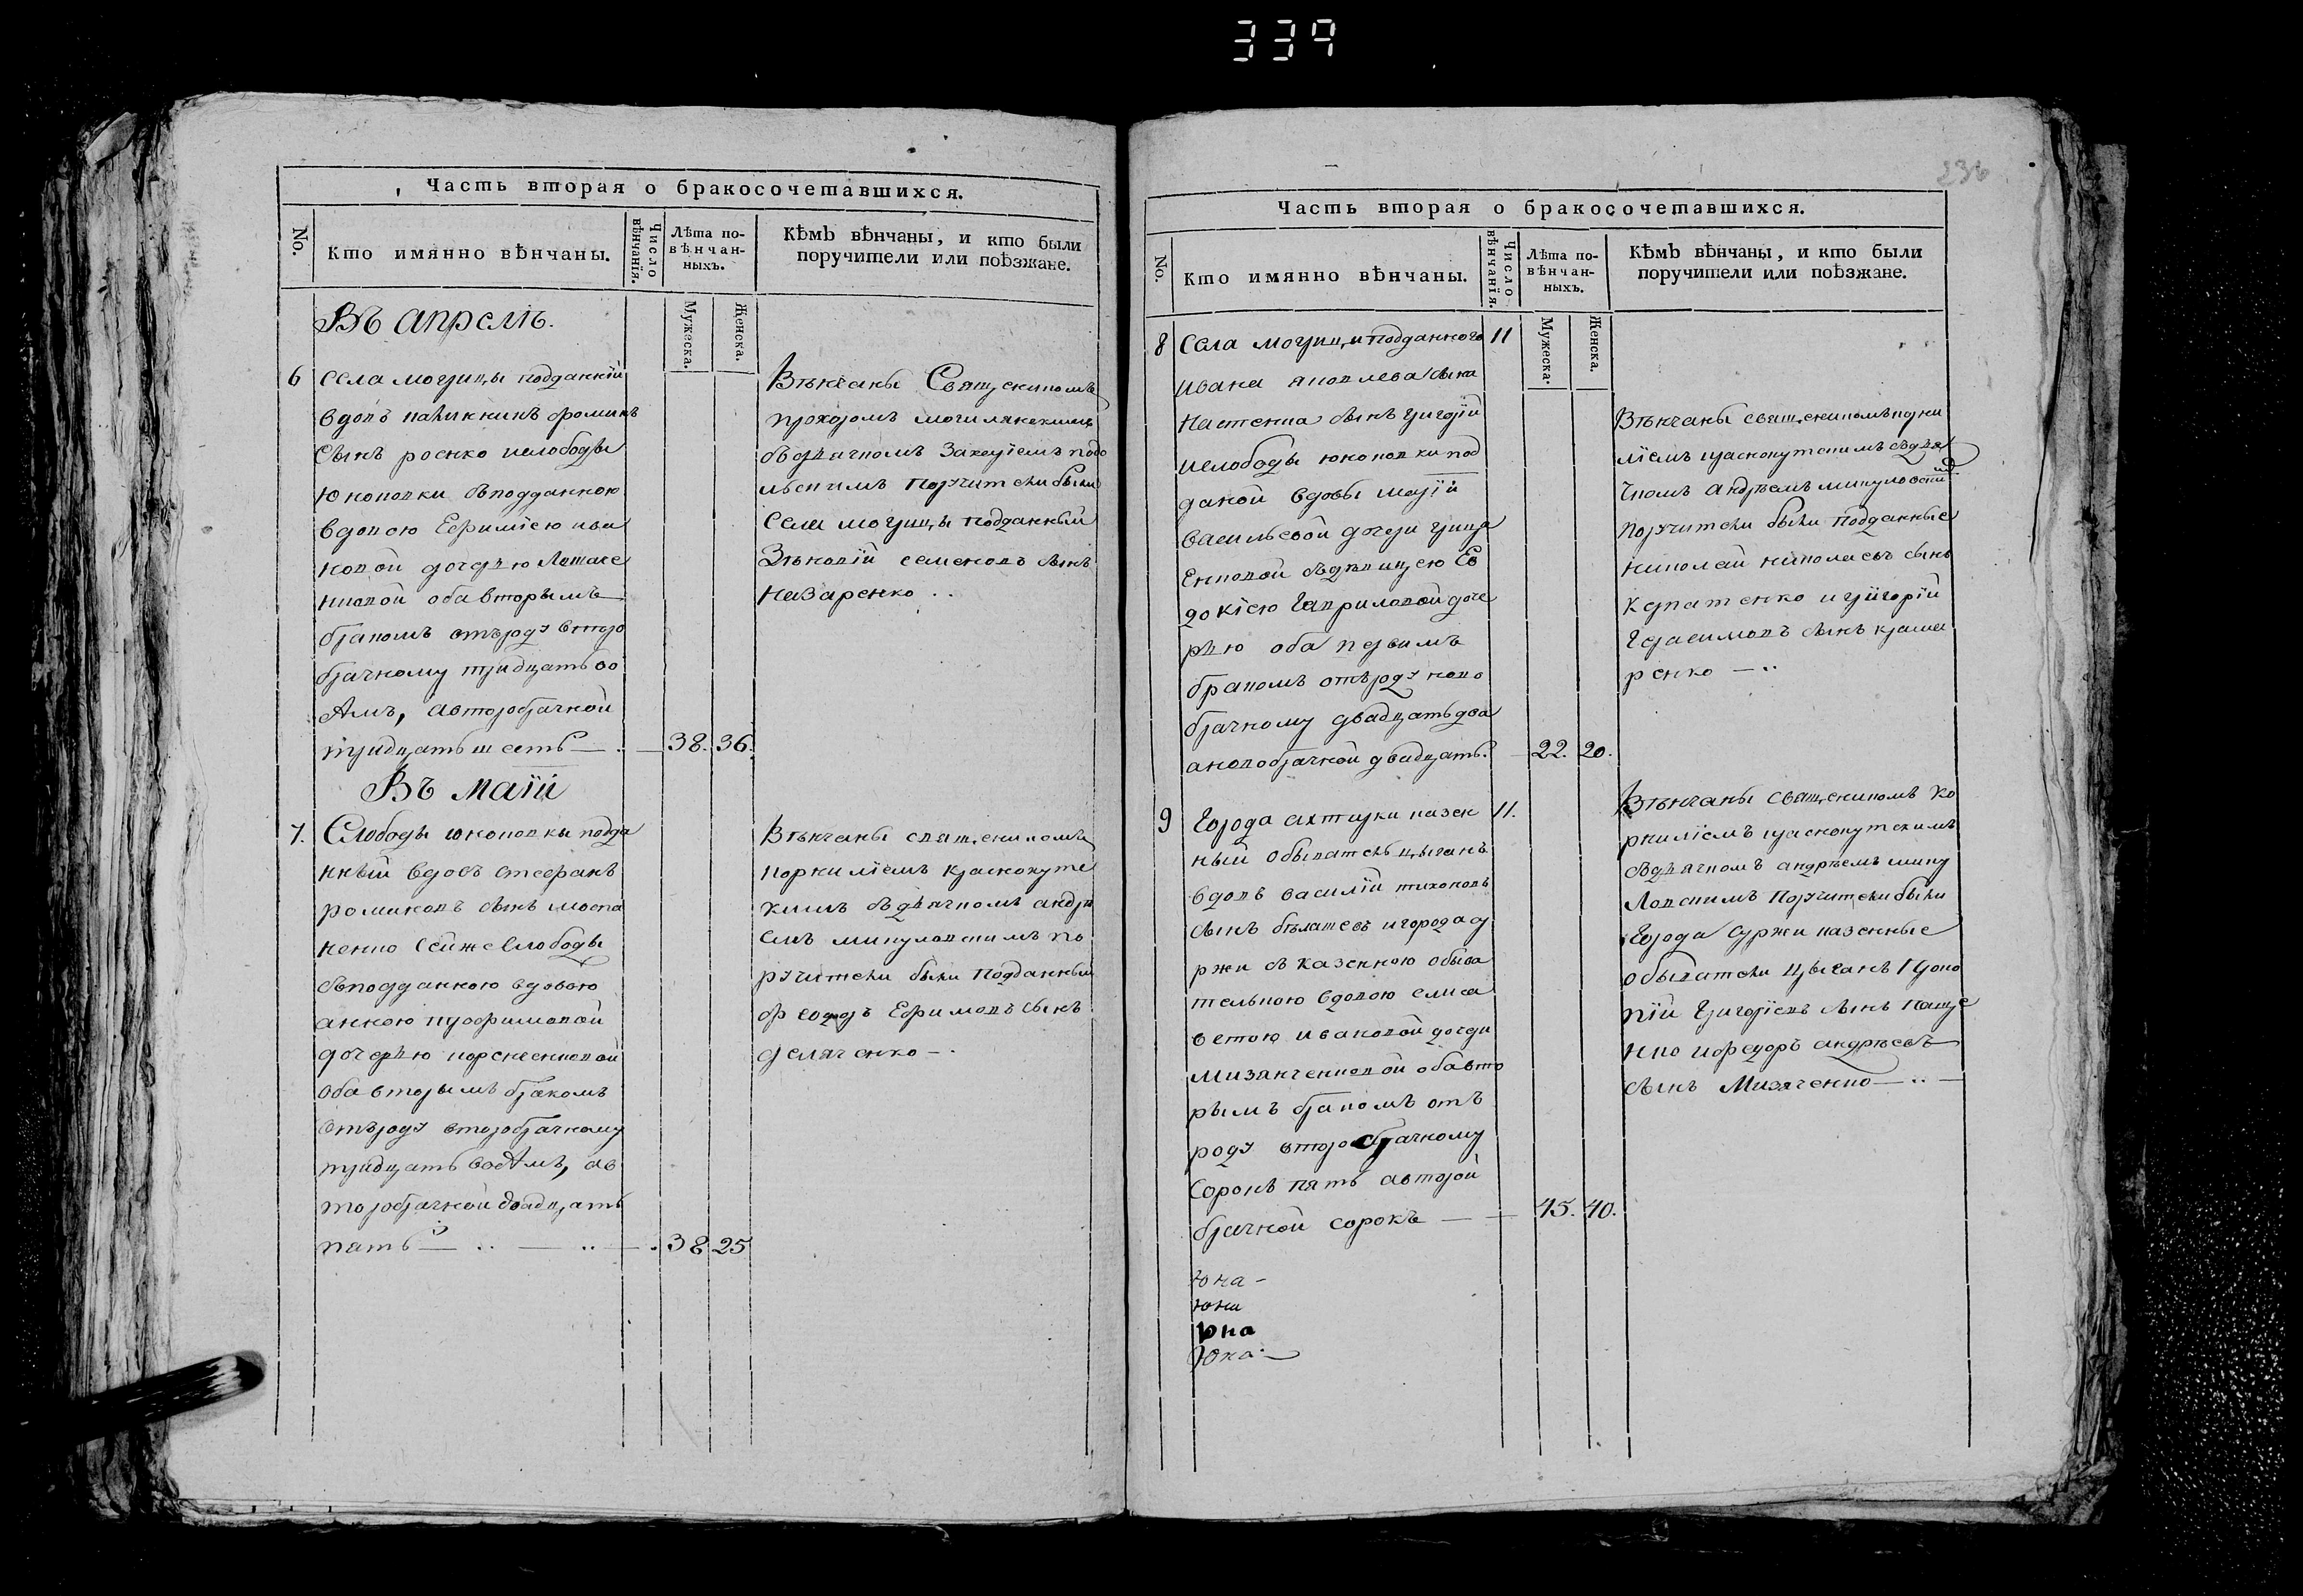 339
236
Часть вторая о бракосочетавшихся.
No.
Кто имянно вѣнчаны.
Число вѣнчанія.
Лѣта по-
вѣнчан-
ныхъ.
Кѣмъ вѣнчаны, и кто были
поручители или поѣзжане.
Мужеска.
Женска.
Въ апрелѣ.
6 села могрицы подданній
вдовъ фоминъ
сынъ роенко ислободы
Юноковки сподданною
вдовою Ефиміею ива
новой дочерью
обавторымъ
бракомъ отъроду второ
брачному тридцатьво
семъ, авторобрачной
тридцатьшесть — 38. 36.
Вѣнчаны Священикомъ
прохоромъ
сдьячкомъ Захаріемъ
Поручители были
села могрицы подданный
Зѣновій семеновъ сынъ
назаренко ..
Въ маіи
7. Слободы юнаковки подда
нный вдовъ стефанъ
романовъ сынъ моска
ленко сейже Слободы
сподданною вдовою
анною трофимовой
дочерью
оба вторымъ бракомъ
Отъроду второбрачному
тридцать восемъ, ав
торобрачной двадцать
пять — .. — .. — . 38 25
Вѣнчаны священикомъ
корниліемъ краснокутс
кимъ сдьячкомъ андре
емъ микуловскимъ по
ручители были Подданный
феодоръ Ефимовъ сынъ
деляченко — .
Часть вторая о бракосочетавшихся.
No.
Кто имянно вѣнчаны.
Число вѣнчанія.
Лѣта по-
вѣнчан-
ныхъ.
Кѣмъ вѣнчаны, и кто были
поручители или поѣзжане.
Мужеска.
Женска.
8 Села могрицы подданного 11
ивана яковлева сына
сынъ григорій
ислободы юнаковки под
даной вдовы маріи
васильевой дочери грица
енковой сдѣвицею Ев
докіею гавриловой доче
рью оба первимъ
бракомъ отъроду ново
брачному двадцатьдва
ановобрачной двадцать. 22. 20.
Вѣнчаны священикомъ корни
ліемъ краснокутскимъ сдья
чкомъ андрѣемъ микуловски
мъ
поручители были подданные
николай николаевъ сынъ
и григорій
герасимовъ сынъ крама
ренко — ..
9 Города ахтирки казен 11.
ный обыватель цыганъ
вдовъ василій тихоновъ
сынъ бѣлашевъ игорода су
ржи сказенною обыва
тельною вдовою елиса
ветою ивановой дочери
мизанченковой обавто
рымъ бракомъ отъ
роду второбрачному
сорокъ пять авторой
брачной сорокъ — — 45. 40.
Вѣнчаны священикомъ ко
рниліемъ краснокутскимъ
сдьячкомъ андрѣемъ мику
ловскимъ Поручители были
города суржи казенные
обыватели цыганъ проко
пій григоріевъ сынъ
нко ифедоръ андрѣевъ
сынъ Мизяченко — .. —
Юна —
юна
юна
Юна —